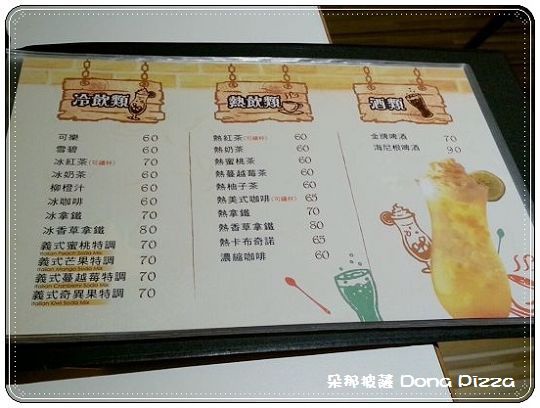 冷飲類
可樂 60
雪碧 60
冰紅茶(可續杯) 70
冰奶茶 60
柳橙汁 60
冰咖啡 60
冰拿鐵 70
冰香草拿鐵 80
義式蜜桃特調 70
Italian Peach Soda Mix
義式芒果特調 70
Italian Mango Soda Mix
義式蔓越莓特調 70
Italian Cranberri Soda Mix
義式奇異果特調 70
Italian Kiwi Soda Mix
熱飲類
熱紅茶(可續杯) 60
熱奶茶 60
熱蜜桃茶 60
熱蔓越莓茶 60
熱柚子茶 60
熱美式咖啡(可續杯) 65
熱拿鐵 70
熱香草拿鐵 80
熱卡布奇諾 65
濃縮咖啡 60
酒類
金牌啤酒 70
海尼根啤酒 90
朵那披薩 Dona Pizza